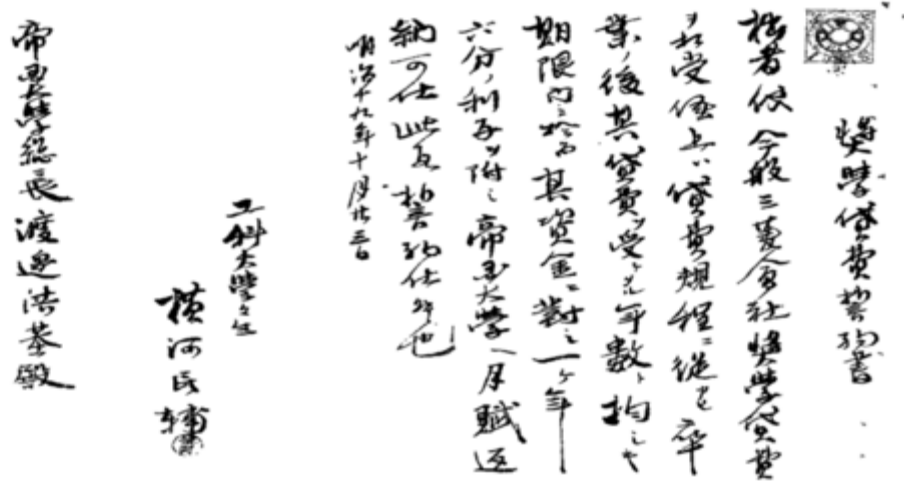 奨學貸費誓約書
拙者儀今般三菱會社奨學貸費
ヲ相受候上ハ貸費規程ニ従ヒ卒
業ノ後其貸費ヲ受ケタル年數ト均シキ
期限内ニ於而其資金ニ對シ一ケ年
六分ノ利子ヲ附シ帝国大學ヘ月賦返
納可仕此段誓約仕候也
明治十九年十月廿三日
工科大學々生
横河民輔
帝国大學総長渡邊洪基殿